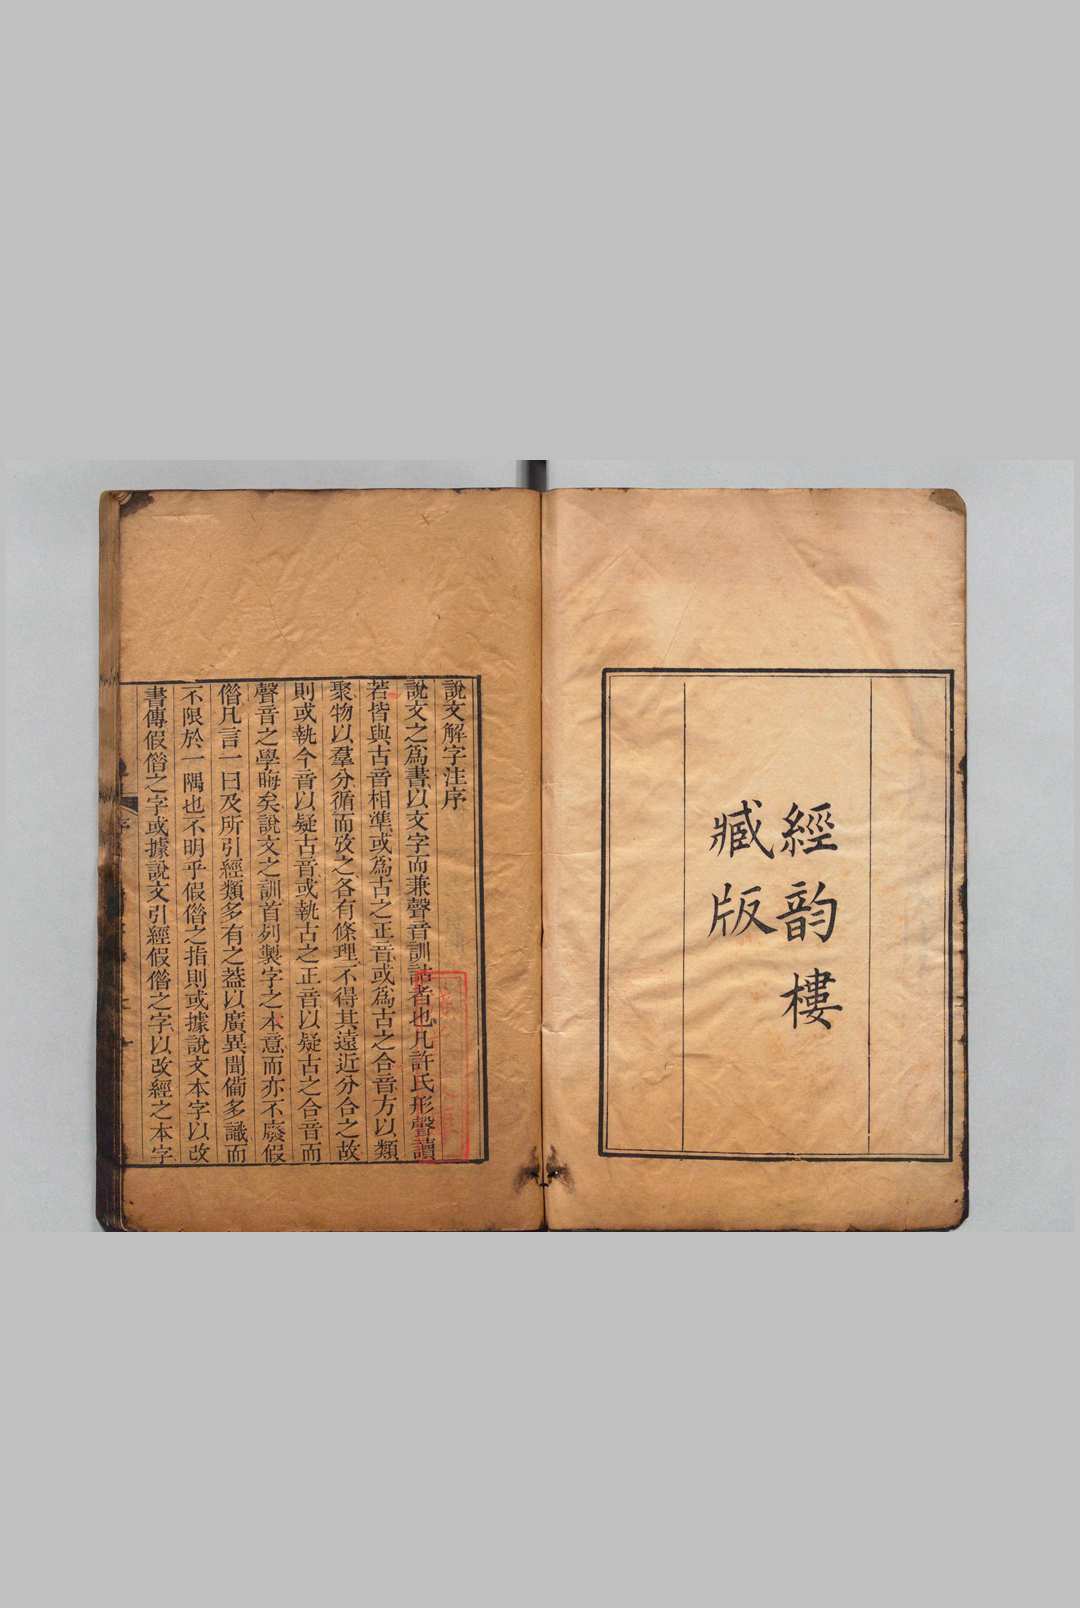 經韵樓
臧版
說文解字注序
說文之爲書以文字而兼聲音訓詁者也凡許氏形聲讀
若皆與古音相準或爲古之正音或爲古之合音方以類
聚物以羣分循而攷之各有條理不得其遠近分合之故
則或執今音以疑古音或執古之正音以疑古之合音而
聲音之學晦矣說文之訓首列製字之本意而亦不廢假
偺凡言一曰及所引經類多有之葢以廣異聞備多識而
不限於一隅也不明乎假偺之指則或據說文本字以改
書傳假偺之字或據說文引經假偺之字以改經之本字
序